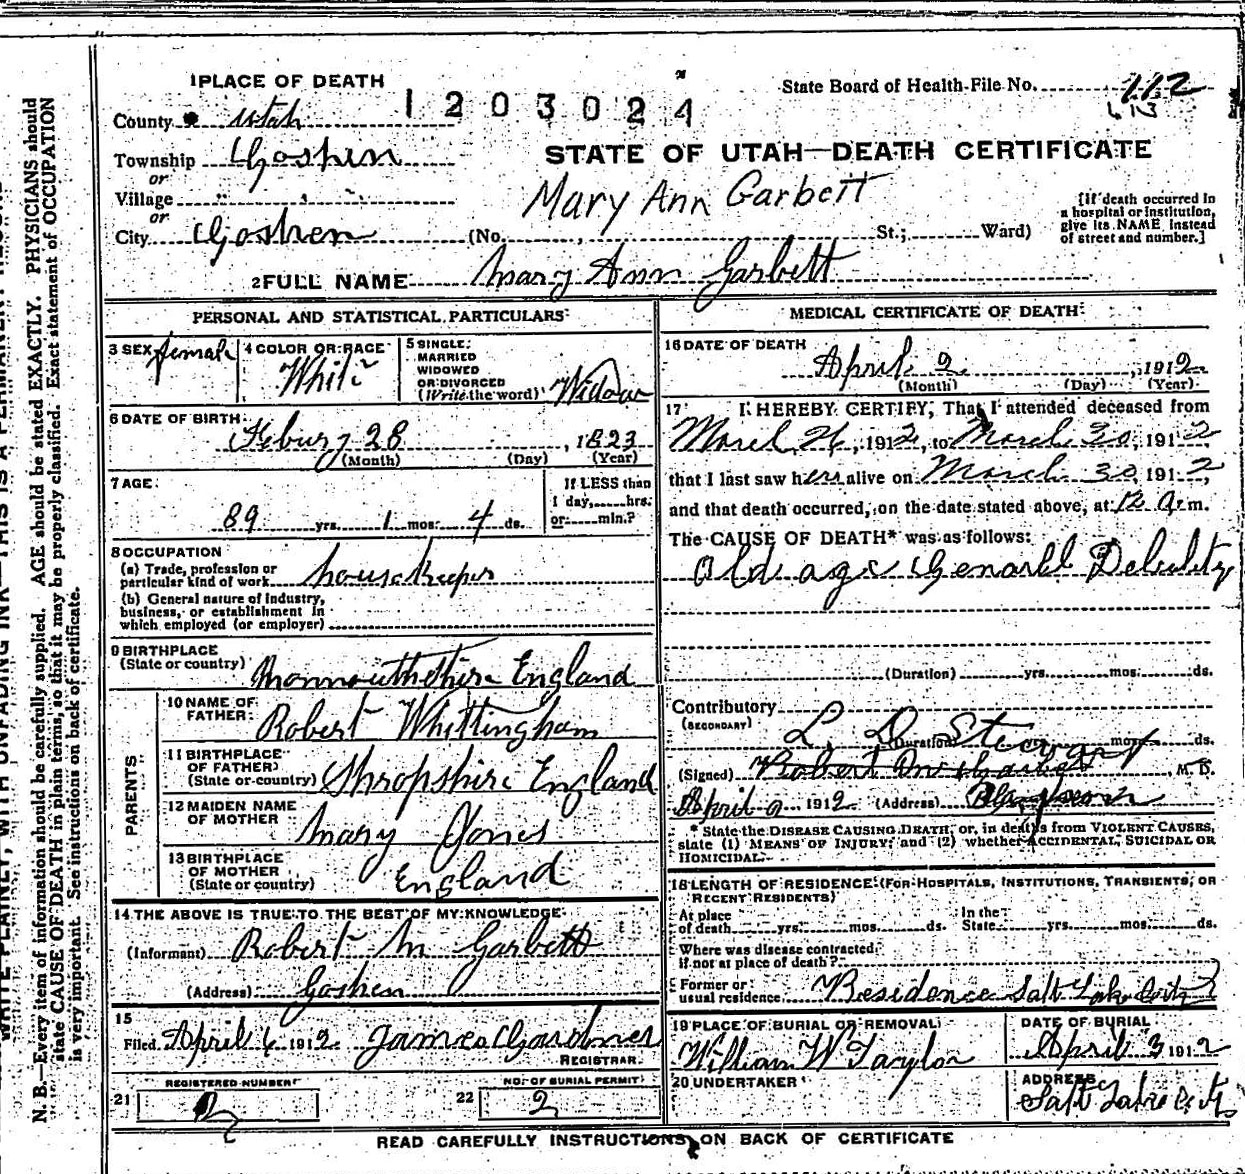 1 PLACE OF DEATH
State Board of Health File No. 112
1203024
613
County Utah
Township Goshen
or
STATE OF UTAH—DEATH CERTIFICATE
Village " " "
or
Mary Ann Garbett
City Goshen (No. , St.; Ward)
[If death occurred in
a hospital or institution,
give its NAME instead
of street and number.]
2 FULL NAME Mary Ann Garbett
PERSONAL AND STATISTICAL PARTICULARS
3 SEX female
4 COLOR OR RACE White
5 SINGLE,
MARRIED
WIDOWED
OR DIVORCED
(Write the word) Widow
6 DATE OF BIRTH
Febury 28, 1823
(Month) (Day) (Year)
7 AGE
If LESS than
1 day, hrs.
or min.?
89 yrs. 1 mos. 4 ds.
8 OCCUPATION
(a) Trade, profession or
particular kind of work housekeeper
(b) General nature of industry,
business, or establishment in
which employed (or employer)
9 BIRTHPLACE
(State or country) Monmouthshire England
PARENTS
10 NAME OF
FATHER Robert Whittingham
11 BIRTHPLACE
OF FATHER
(State or country) Shropshire England
12 MAIDEN NAME
OF MOTHER Mary Jones
13 BIRTHPLACE
OF MOTHER
(State or country) England
14 THE ABOVE IS TRUE TO THE BEST OF MY KNOWLEDGE
(Informant) Robert M Garbett
(Address) Goshen
15
Filed April 4 1912 James Gardner
REGISTRAR
REGISTERED NUMBER
21 2
NO. OF BURIAL PERMIT
22 2
MEDICAL CERTIFICATE OF DEATH
16 DATE OF DEATH
April 2, 1912
(Month) (Day) (Year)
17 I HEREBY CERTIFY, That I attended deceased from
March 26, 1912, to March 30, 1912,
that I last saw her alive on March 30, 1912,
and that death occurred, on the date stated above, at 12 a. m.
The CAUSE OF DEATH* was as follows:
Old age Genarll Debulity
(Duration) yrs. mos. ds.
Contributory
(SECONDARY)
L. D. Stewart
(Duration) mos. ds.
(Signed) Robert M Garbett, M. D.
April 2 1912 (Address)
* State the DISEASE CAUSING DEATH, or, in deaths from VIOLENT CAUSES,
state (1) MEANS OF INJURY; and (2) whether ACCIDENTAL, SUICIDAL OR
HOMICIDAL.
18 LENGTH OF RESIDENCE (FOR HOSPITALS, INSTITUTIONS, TRANSIENTS, OR
RECENT RESIDENTS)
At place
of death yrs. mos. ds.
In the
State yrs. mos. ds.
Where was disease contracted,
if not at place of death?
Former or
usual residence Residence Salt Lake City
19 PLACE OF BURIAL OR REMOVAL
DATE OF BURIAL
William W Taylor
April 3 1912
20 UNDERTAKER
ADDRESS
Salt Lake City
READ CAREFULLY INSTRUCTIONS ON BACK OF CERTIFICATE
N. B.—Every item of information should be carefully supplied. AGE should be stated EXACTLY. PHYSICIANS should
state CAUSE OF DEATH in plain terms, so that it may be properly classified. Exact statement of OCCUPATION
is very important. See instructions on back of certificate.